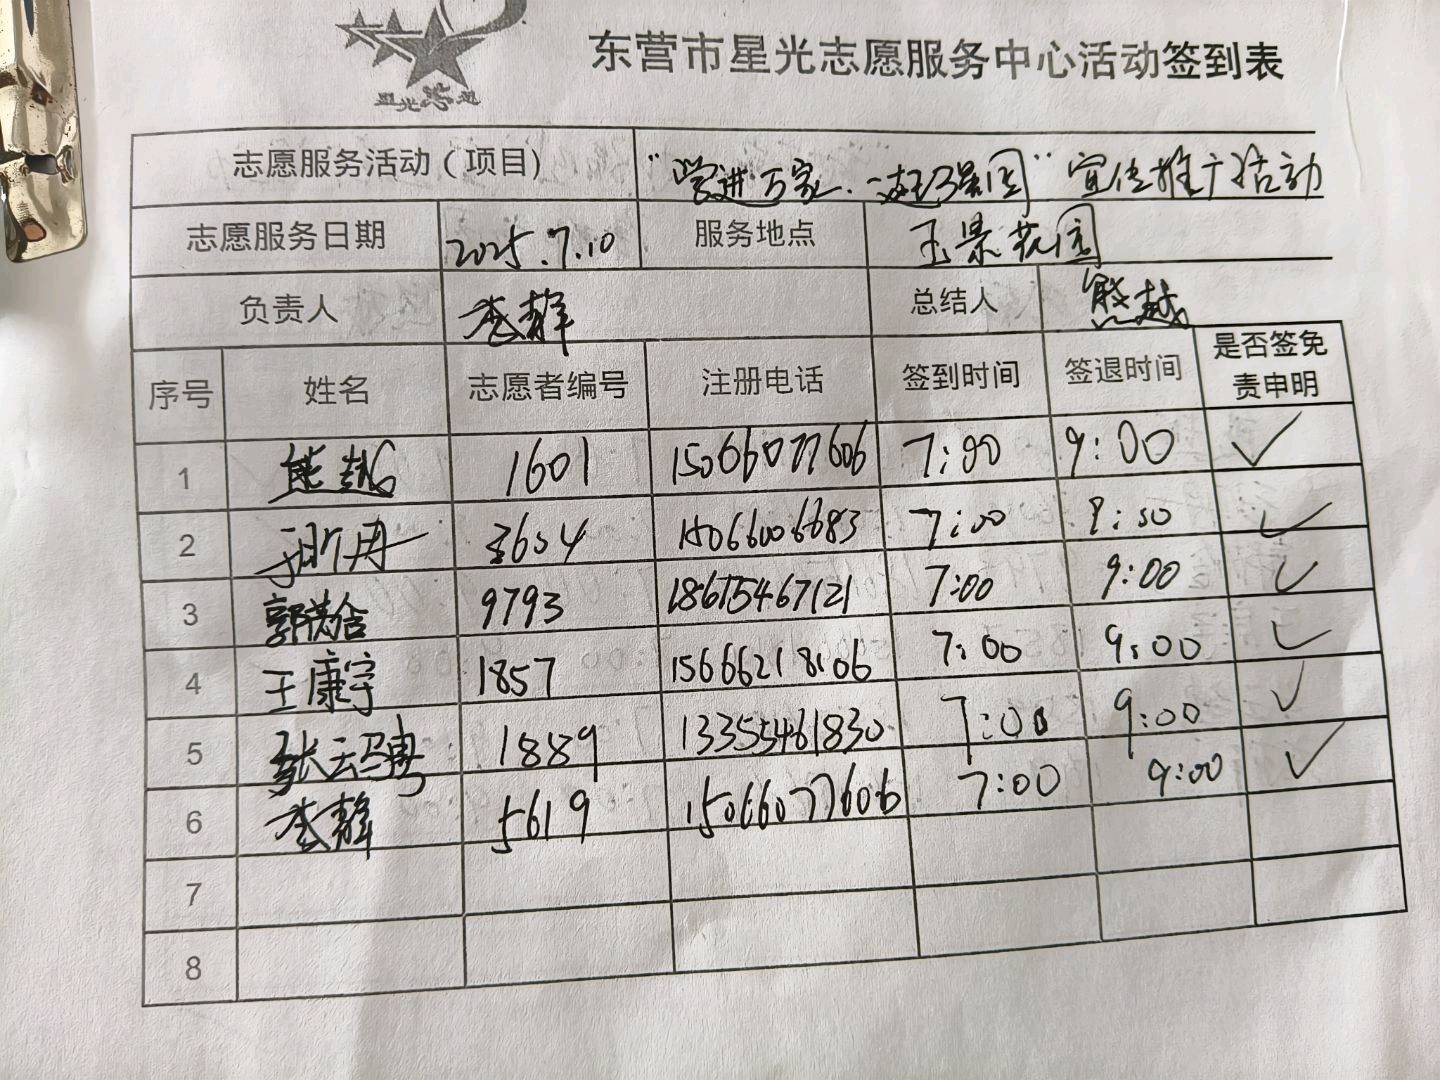 星光志愿
东营市星光志愿服务中心活动签到表
志愿服务活动（项目） "党进万家 宣传推广活动
志愿服务日期 2025.7.10 服务地点 玉景花园
负责人 李静 总结人 熊越
序号 姓名 志愿者编号 注册电话 签到时间 签退时间 是否签免责申明
1 熊越 1601 15066077606 7:00 9:00 ✓
2 3604 15066006683 7:00 9:00 ✓
3 郭英含 9793 18615467121 7:00 9:00 ✓
4 王康宇 1857 15666218106 7:00 9:00 ✓
5 张云骋 1889 13355461830 7:00 9:00 ✓
6 李静 5619 15066077606 7:00 9:00 ✓
7
8